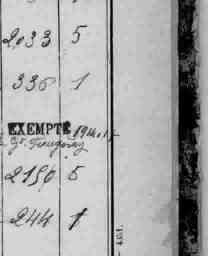 2033 5
336 1
EXEMPTÉ 1914.
2150 5
244 1